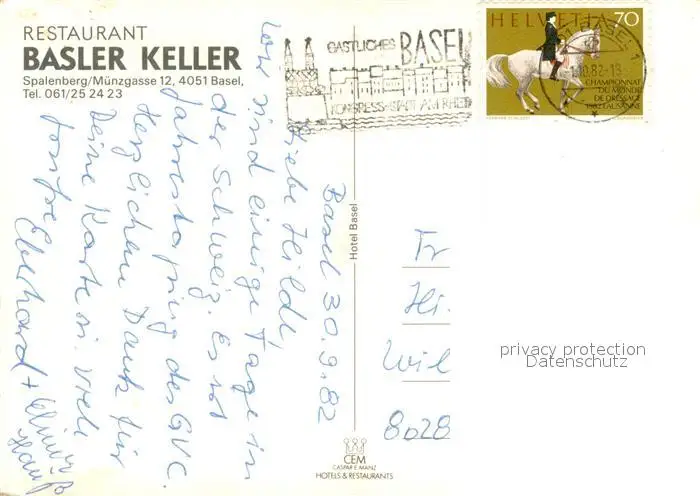 RESTAURANT
BASLER KELLER
Spalenberg/Münzgasse 12, 4051 Basel,
Tel. 061/25 24 23
GASTLICHES BASEL
KONGRESS-STADT AM RHEIN
HELVETIA 70
BASEL 1
.10.82-13
CHAMPIONNAT
DU MONDE
DE DRESSAGE
1982 LAUSANNE
Basel 30.9.82
Liebe Hilde,
wir sind einige Tage in
der Schweiz. Es ist
Jahrestagung des GVC.
Herzlichen Dank für
Deine Karte n. Viele
Eberhard +
Hotel Basel
Fr
Hi.
Wil
8028
privacy protection
Datenschutz
CEM
CASPAR E. MANZ
HOTELS & RESTAURANTS